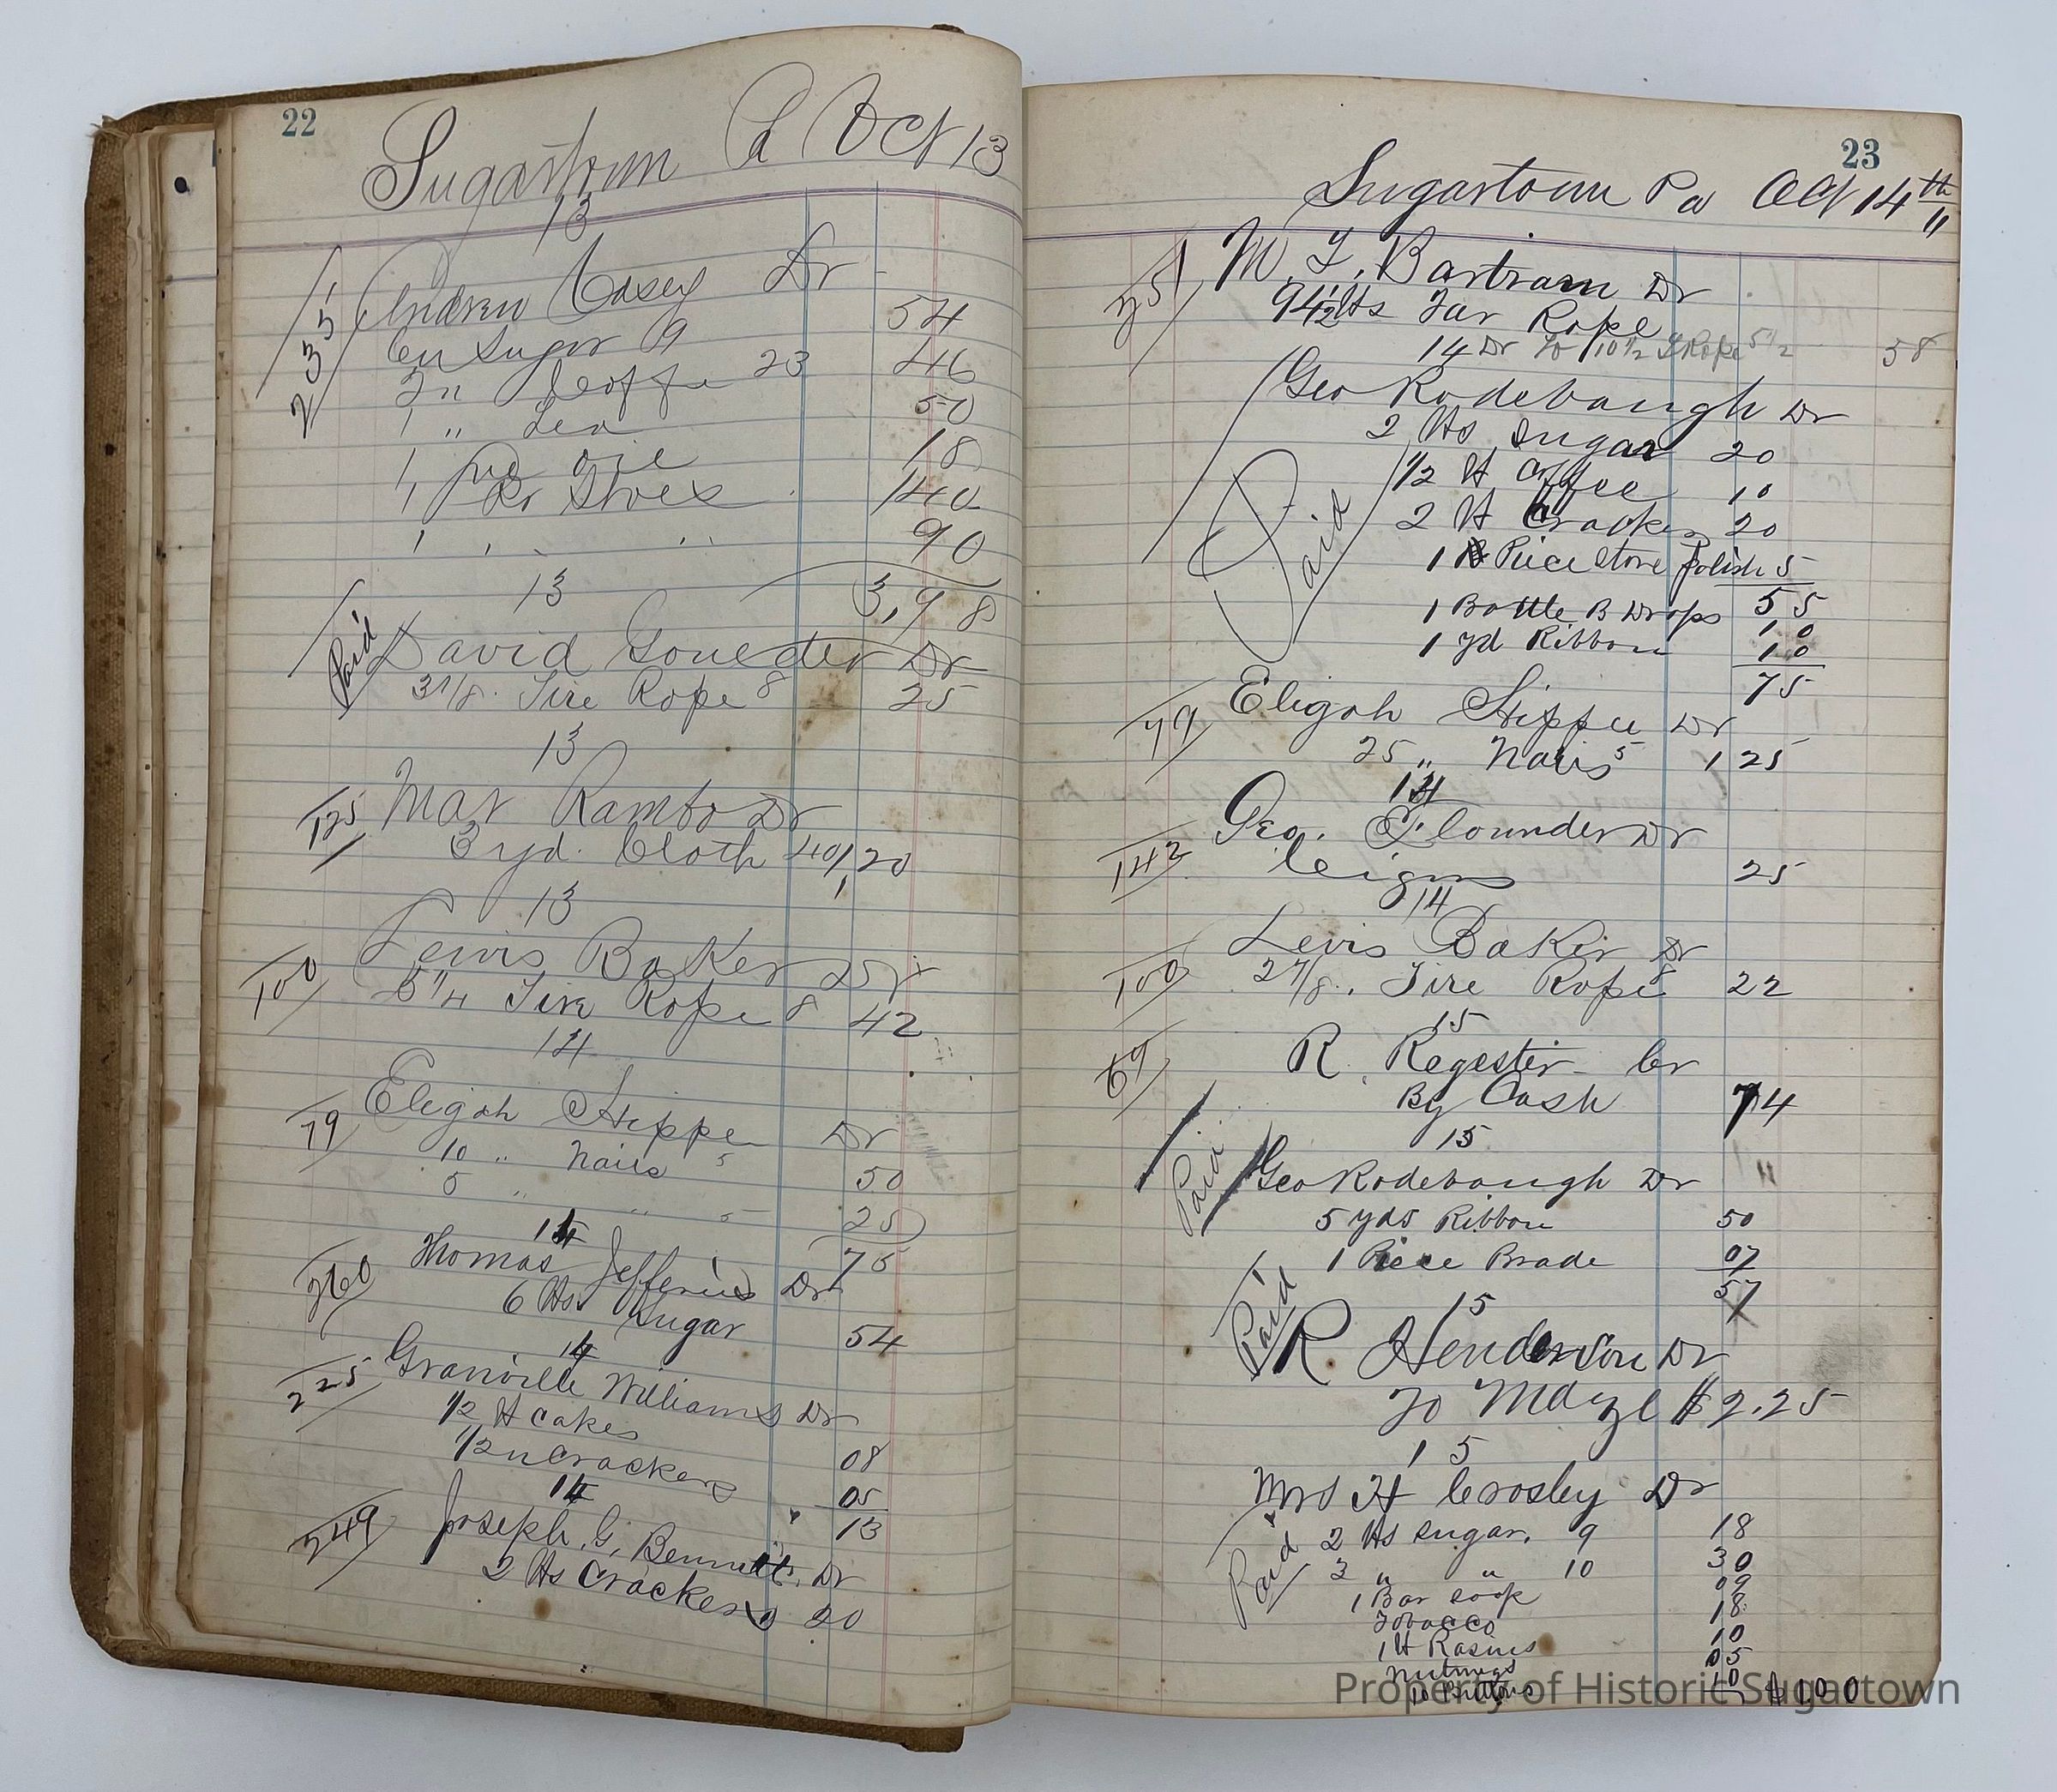 22
Sugartown Pa Oct 13
13
235 Andrew Casey Dr
6 " Sugar 9 54
2 " Coffe 23 46
1 " Tea 50
1 oil 18
1 Pr Shoes 140
1 " " 90
3,98
13
Paid David Dr
3 1/8 Tire Rope 8 25
13
125 Mar Rambo Dr
3 yd. Cloth 40 1,20
13
100 Lewis Baker Dr
5 1/4 Tire Rope 8 42
14
79 Eligah Hippe Dr
10 " Nails 5 50
5 " " 5 25
75
14
260 Thomas Jefferies Dr
6 lts Sugar 54
14
225 Granville Williams Dr
1/2 lt cakes 08
1/2 " crackers 05
13
14
249 Joseph G. Bennett Dr
2 lts Crackers 20
23
Sugartown Pa Oct 14th
M. T. Bartram Dr
Tar Rope
14 Dr To 10 1/2 T Rope 5 1/2 58
Geo Rodebaugh Dr
2 lts sugar 20
1/2 lt coffee 10
2 lt Crackers 20
1 Piece stove polish 5
55
Paid
1 Bottle B Drops 10
1 yd Ribbon 10
75
79 Eligah Hippe Dr
25 " Nails 5 1 25
14
142 Geo. Flounder Dr
Cigars 25
14
100 Levis Baker Dr
2 7/8 Tire Rope 8 22
15
69 R. Regester Cr
By Cash 74
15
Paid Geo Rodebaugh Dr
5 yds Ribbon 50
1 Piece Brade 07
57
15
Paid R. Henderson Dr
To Mdze $2.25
15
Mrs H Crosley Dr
Paid 2 lts sugar. 9 18
3 " " 10 30
1 Bar soap 09
Tobacco 18
1 lt Rasins 10
Nutmegs 05
10 Buttons 10 $1.00
Property of Historic Sugartown